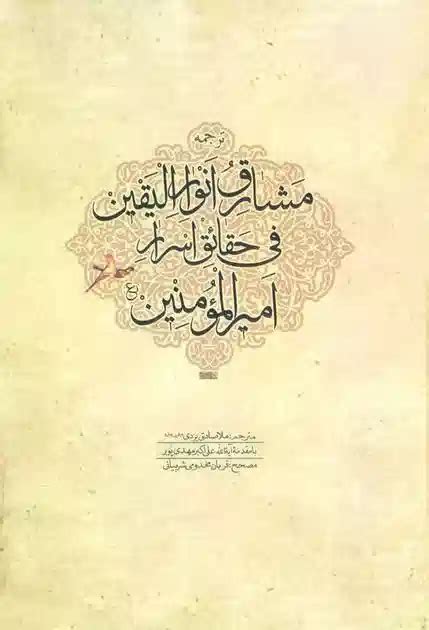 ترجمه
مَشارِقُ اَنْوارِ الْیَقین
فی حَقائِقِ اَسْرارِ
اَمیرِ الْمُؤمِنینَ ع
مترجم: ملا صادق یزدی
با مقدمه آیة‌الله علی اکبر مهدی پور
مصحح: قربان مخدومی شربیانی